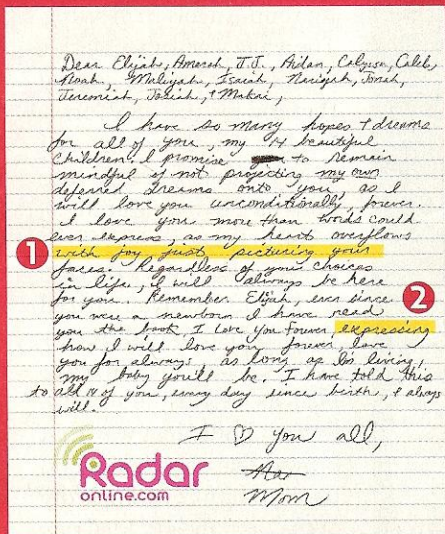 Dear Elijah, Amerah, J.J., Aidan, Calyssa, Caleb,
Noah, Maliyah, Isaiah, Nariyah, Jonah,
Jeremiah, Josiah, + Makai,
I have so many hopes + dreams
for all of you, my 14 beautiful
children. I promise to remain
mindful of not projecting my own
deferred dreams onto you, as I
will love you unconditionally, forever.
I love you more than words could
ever express, as my heart overflows
1 with joy just picturing your
faces. Regardless of your choices
in life, I will always be here
for you. Remember Elijah, ever since 2
you were a newborn I have read
you the book, I Love You Forever, expressing
how I will love you forever, love
you for always, as long as I'm living,
my baby you'll be. I have told this
to all 14 of you, every day since birth, & always
will.
I ♡ you all,
Mom
Radar
online.com